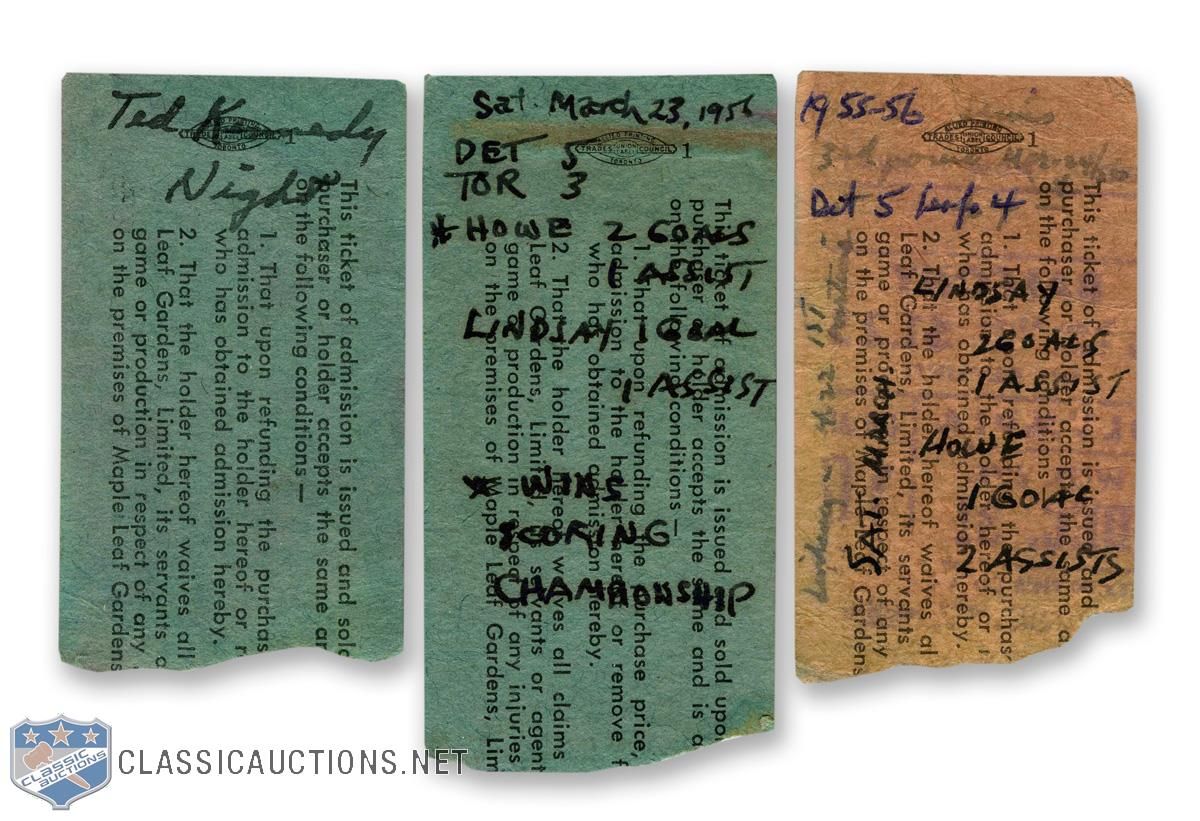 Ted Kennedy
Night
ALLIED PRINTING
TRADES UNION LABEL COUNCIL
TORONTO
This ticket of admission is issued and sold
purchaser or holder accepts the same
on the following conditions—
1. That upon refunding the
admission to the holder hereof or
who has obtained admission hereby.
2. That the holder hereof waives all
Leaf Gardens, Limited, its servants
game or production in respect of any
on the premises of Maple Leaf Gardens
Sat. March 23, 1956
ALLIED PRINTING
TRADES UNION LABEL COUNCIL
TORONTO
1
DET 5
TOR 3
* HOWE 2 GOALS
1 ASSIST
LINDSAY 1 GOAL
1 ASSIST
* WINS
SCORING
CHAMPIONSHIP
This ticket of admission is issued and sold upon
purchaser or holder accepts the same and is
on the following conditions—
1. That upon refunding the purchase price,
admission to the holder hereof or remove
who has obtained admission hereby.
2. That the holder hereof waives all claims
Leaf Gardens, Limited, its servants or agent
game or production in respect of any injuries
on the premises of Maple Leaf Gardens, Lim
1955-56
ALLIED PRINTING
TRADES UNION LABEL COUNCIL
TORONTO
1
Det 5 Leafs 4
LINDSAY
2 GOALS
1 ASSIST
HOWE
1 GOAL
2 ASSISTS
SAT. MARCH
This ticket of admission is issued and
purchaser or holder accepts the same
on the following conditions
1. That upon refunding the purchas
admission to the holder hereof or
who has obtained admission hereby.
2. That the holder hereof waives al
Leaf Gardens, Limited, its servants
game or production in respect of any
on the premises of Maple Leaf Gardens
CLASSIC AUCTIONS
CLASSICAUCTIONS.NET